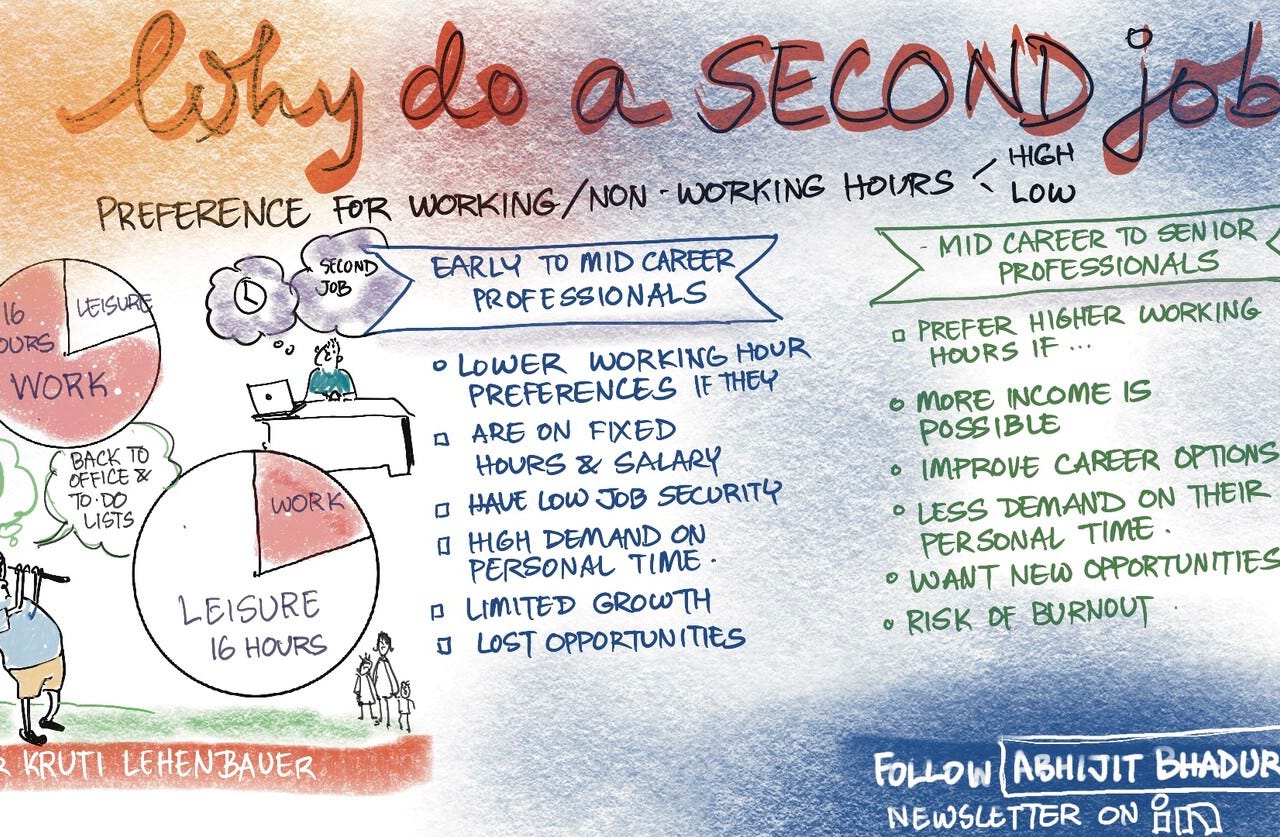 Why do a SECOND job
PREFERENCE FOR WORKING/NON-WORKING HOURS < HIGH
LOW
16
OURS
WORK
LEISURE
SECOND
JOB
BACK TO
OFFICE &
TO-DO
LISTS
WORK
LEISURE
16 HOURS
R KRUTI LEHENBAUER
EARLY TO MID CAREER
PROFESSIONALS
LOWER WORKING HOUR
PREFERENCES IF THEY
ARE ON FIXED
HOURS & SALARY
HAVE LOW JOB SECURITY
HIGH DEMAND ON
PERSONAL TIME.
LIMITED GROWTH
LOST OPPORTUNITIES
- MID CAREER TO SENIOR
PROFESSIONALS
PREFER HIGHER WORKING
HOURS IF ...
MORE INCOME IS
POSSIBLE
IMPROVE CAREER OPTIONS
LESS DEMAND ON THEIR
PERSONAL TIME.
WANT NEW OPPORTUNITIES
RISK OF BURNOUT
FOLLOW ABHIJIT BHADUR
NEWSLETTER ON in